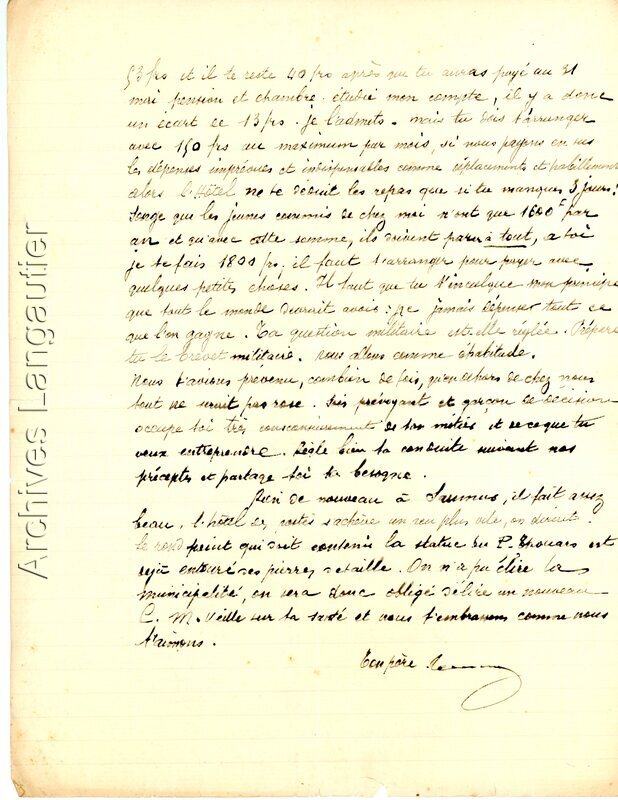 53 frs et il te reste 40 frs après que tu auras payé au 31
mai pension et chambre. étudie mon compte, il y a donc
un écart de 13 frs. je l'admets. mais tu dois t'arranger
avec 150 frs au maximum par mois, si nous payons en sus
les dépenses imprévues et indispensables comme déplacements et habillement
alors l'hôtel ne te déduit les repas que si tu manques 3 jours!
Songe que les jeunes commis de chez moi n'ont que 1600 f par
an et qu'avec cette somme, ils doivent parer à tout, à toi
je te fais 1800 frs, il faut t'arranger pour payer avec,
quelques petites choses. Il faut que tu t'inculque mon principe
que tout le monde devrait avoir: ne jamais dépenser tout ce
que l'on gagne. La question militaire est-elle réglée. Prépare
tu le brevet militaire. nous allons comme d'habitude.
Nous t'avions prévenu, combien de fois, qu'en dehors de chez nous
tout ne serait pas rose. Sois prévoyant et garçon de décision
occupe toi très consciencieusement de ton métier, et de ce que tu
veux entreprendre. Règle bien ta conduite suivant nos
préceptes et partage toi ta besogne.
Rien de nouveau à Saumur, il fait assez
beau, l'hôtel des postes s'achève un peu plus vite, on dirait.
le rond point qui doit contenir la statue du P. Thouars est
déjà entouré des pierres de taille. On n'a pu élire la
municipalité, on sera donc obligé d'élire un nouveau
C. M. Veille sur ta santé et nous t'embrassons comme nous
t'aimons.
Ton père
Archives Langautier